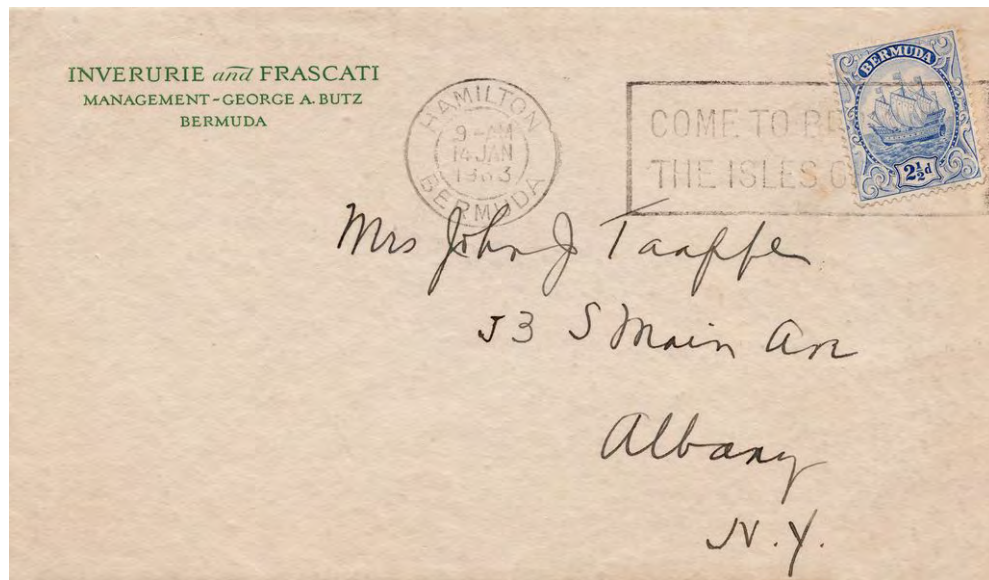 INVERURIE and FRASCATI
MANAGEMENT-GEORGE A. BUTZ
BERMUDA
HAMILTON
9-AM
14 JAN
1933
BERMUDA
COME TO
THE ISLES
BERMUDA
2½d
Mrs John J Taaffe
53 S Main Ave
Albany
N.Y.